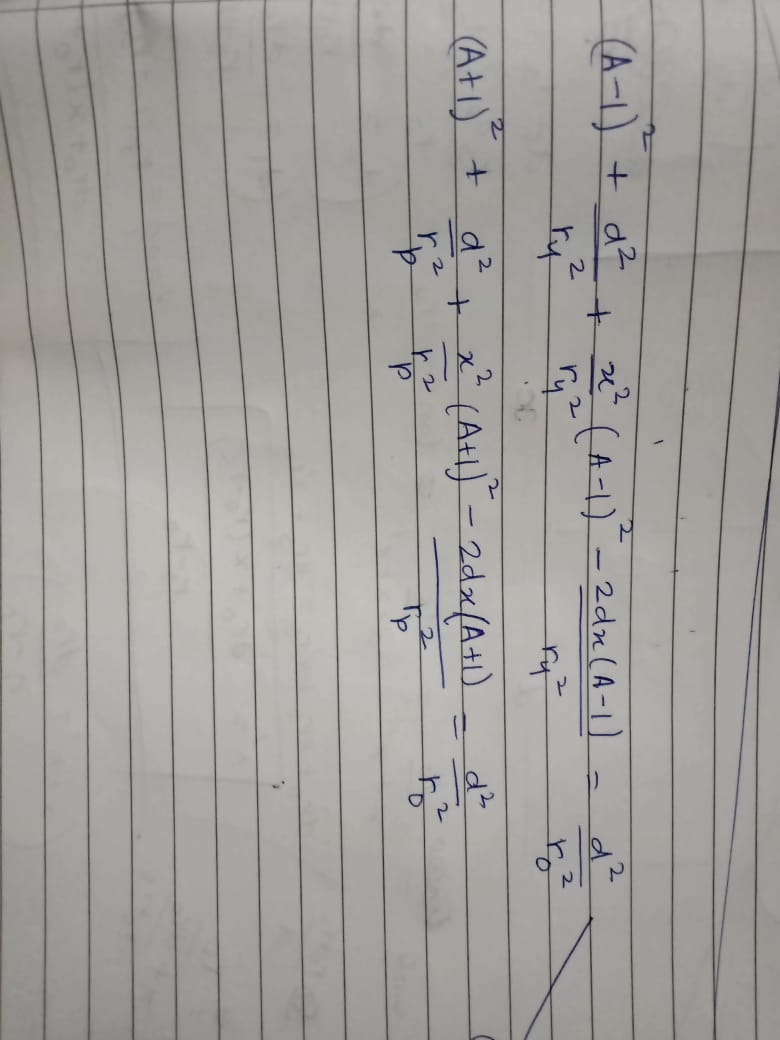 (A-1)² + d²/r_y² + x²/r_y² (A-1)² - 2dx(A-1)/r_y² = d²/r_0²
(A+1)² + d²/r_p² + x²/r_p² (A+1)² - 2dx(A+1)/r_p² = d²/r_0²